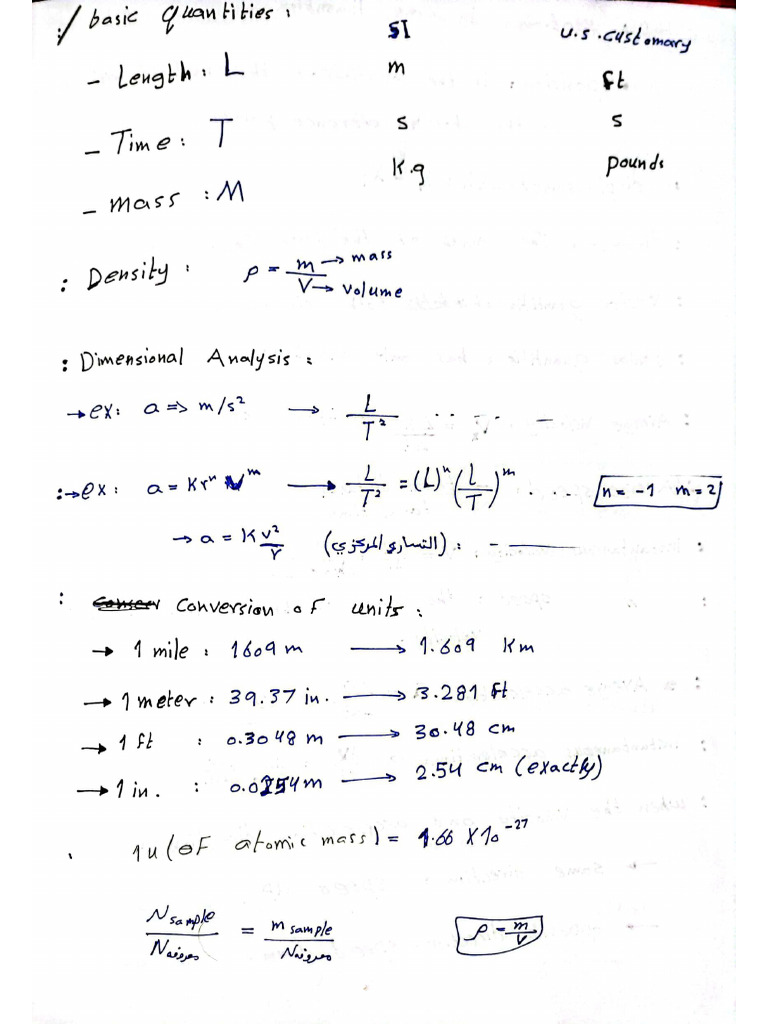 :/ basic Quantities : SI U.S. customary
- Length : L m ft
- Time : T s s
- mass : M K.g pounds
: Density : ρ = m/V → mass → volume
: Dimensional Analysis :
→ ex: a => m/s² → L/T²
:→ ex: a = K rⁿ Vᵐ → L/T² = (L)ⁿ (L/T)ᵐ . . . . n = -1 m = 2
→ a = K v²/r (التسارع المركزي) :
: Conversion of units :
→ 1 mile : 1609 m → 1.609 Km
→ 1 meter : 39.37 in. → 3.281 ft
→ 1 ft : 0.3048 m → 30.48 cm
→ 1 in. : 0.0254 m → 2.54 cm (exactly)
. 1 u (of atomic mass) = 1.66 X 10⁻²⁷
N sample / N معروفة = m sample / N معروفة ρ = m/V